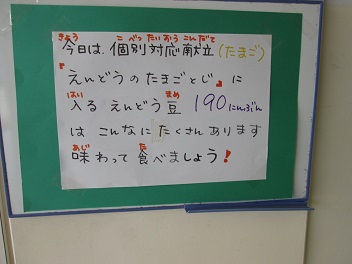 きょう こべつたいおうこんだて
今日は、個別対応献立(たまご)
『えんどうのたまごとじ』に
はい まめ
入る えんどう豆 190にんぶん
は こんなに たくさん あります
あじ た
味わって 食べましょう!